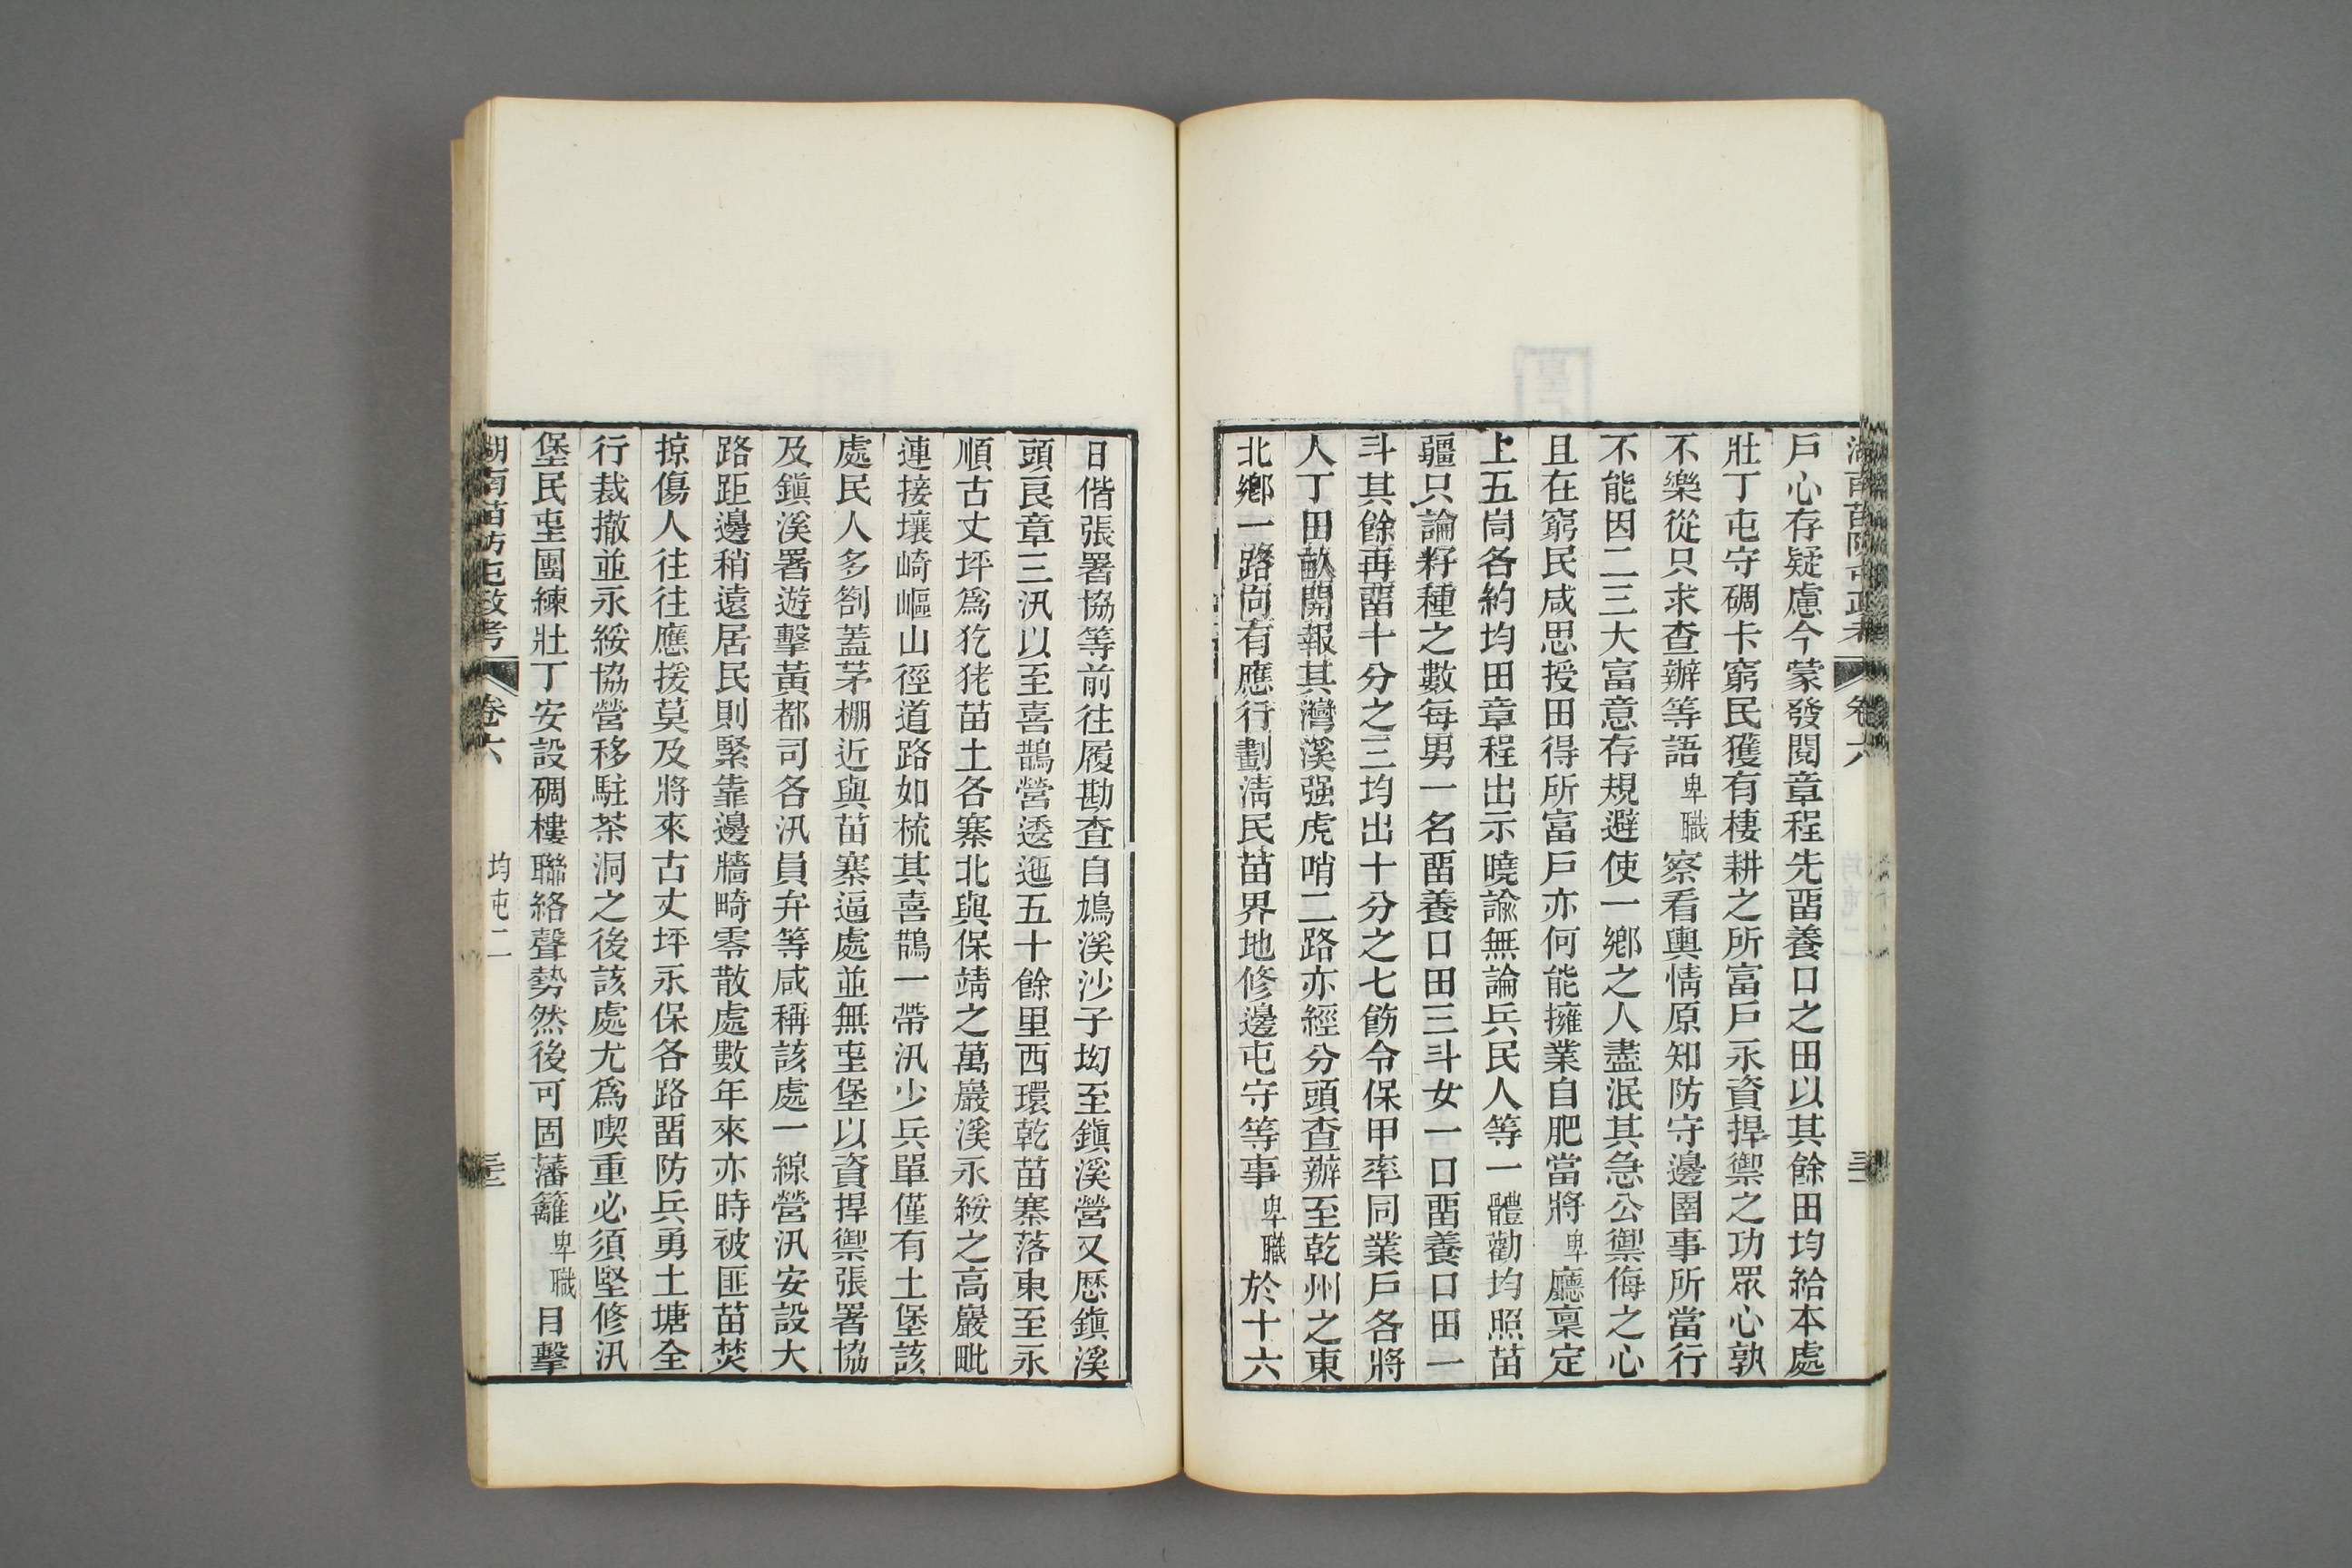 湖南苗防屯政考 卷六
戶心存疑慮今蒙發閱章程先畱養口之田以其餘田均給本處
壯丁屯守碉卡窮民獲有棲耕之所富戶永資捍禦之功眾心孰
不樂從只求查辦等語卑職察看輿情原知防守邊圉事所當行
不能因二三大富意存規避使一鄉之人盡泯其急公禦侮之心
且在窮民咸思授田得所富戶亦何能擁業自肥當將卑廳稟定
上五峝各約均田章程出示曉諭無論兵民人等一體勸均照苗
疆只論籽種之數每男一名畱養口田三斗女一口畱養口田一
斗其餘再畱十分之三均出十分之七飭令保甲率同業戶各將
人丁田畝開報其灣溪强虎哨二路亦經分頭查辦至乾州之東
北鄉一路尙有應行劃淸民苗界地修邊屯守等事卑職於十六
日偕張署協等前往履勘查自鳩溪沙子坳至鎭溪營又歷鎭溪
頭良章三汛以至喜鵲營逶迤五十餘里西環乾苗寨落東至永
順古丈坪爲犵狫苗土各寨北與保靖之萬巖溪永綏之高巖毗
連接壤崎嶇山徑道路如梳其喜鵲一帶汛少兵單僅有土堡該
處民人多劄蓋茅棚近與苗寨逼處並無屯堡以資捍禦張署協
及鎭溪署遊擊黃都司各汛員弁等咸稱該處一線營汛安設大
路距邊稍遠居民則緊靠邊牆畸零散處數年來亦時被匪苗焚
掠傷人往往應援莫及將來古丈坪永保各路畱防兵勇土塘全
行裁撤並永綏協營移駐茶洞之後該處尤爲喫重必須堅修汛
堡民屯團練壯丁安設碉樓聯絡聲勢然後可固藩籬卑職目擊
湖南苗防屯政考 卷六 均屯二